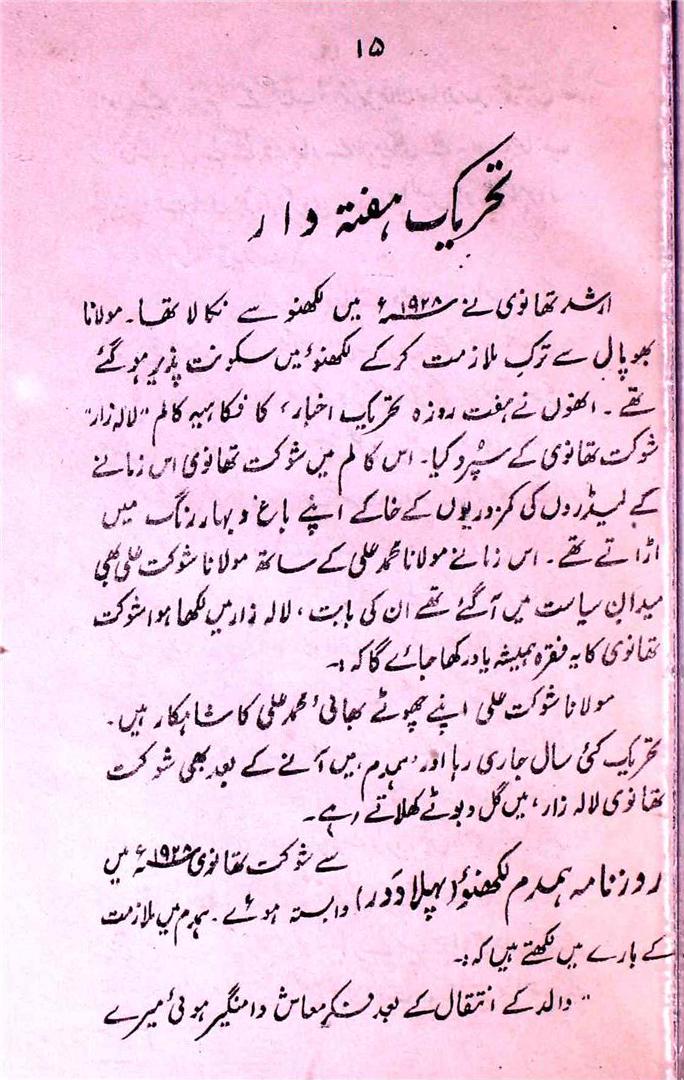 ۱۵
تحریک ہفتہ وار
ارشد تھانوی نے ۱۹۲۸ء میں لکھنو سے نکالا تھا۔ مولانا
بھوپال سے ترک ملازمت کرکے لکھنؤ میں سکونت پذیر ہو گئے
تھے۔ انھوں نے ہفت روزہ تحریک اخبار، کا فکاہیہ کالم "لالہ زار"
شوکت تھانوی کے سپرد کیا۔ اس کالم میں شوکت تھانوی اس زمانے
کے لیڈروں کی کمزوریوں کے خاکے اپنے باغ و بہار رنگ میں
اڑاتے تھے۔ اس زمانے مولانا محمد علی کے ساتھ مولانا شوکت علی بھی
میدان سیاست میں آگئے تھے ان کی بابت، لالہ زار میں لکھا ہوا شوکت
تھانوی کا یہ فقرہ ہمیشہ یاد رکھا جائے گا کہ :۔
مولانا شوکت علی اپنے چھوٹے بھائی محمد علی کا شاہکار ہیں۔
تحریک کئی سال جاری رہا اور، ہمدم، میں آنے کے بعد بھی شوکت
تھانوی لالہ زار، میں گل و بوٹے کھلاتے رہے۔
روزنامہ ہمدم لکھنؤ (پہلا دَور) سے شوکت تھانوی ۱۹۲۸ء میں
وابستہ ہوئے۔ ہمدم میں ملازمت
کے بارے میں لکھتے ہیں کہ :۔
"والد کے انتقال کے بعد فکر معاش دامنگیر ہوئی میرے